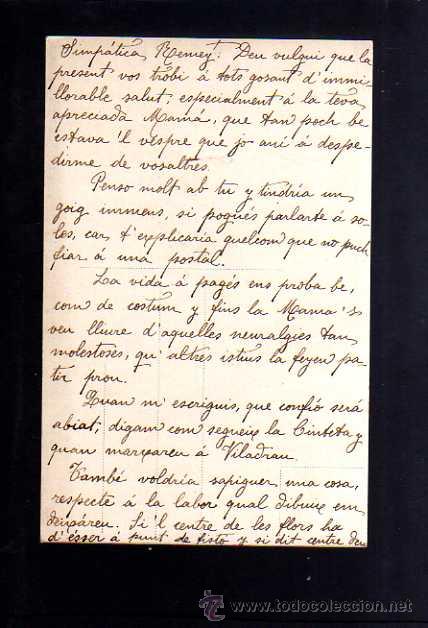 Simpática Remey: Deu vulgui que la
present vos trobi á tots gosant d'immi-
llorable salut, especialment á la teva
apreciada Mamá, que tan poch be
estava 'l vespre que jo aní á despe-
dirme de vosaltres.
Penso molt ab tu y tindría un
goig immens, si pogués parlarte á so-
les, car t'explicaría quelcom que no puch
fiar á una postal.
La vida á pagés ens proba be,
com de costum y fins la Mamá 's
veu lliure d'aquelles neuralgies tan
molestoses, qu' altres istius la feyen pa-
tir prou.
Quan m' escriguis, que confío será
abiat; digam com segueix la Cinteta y
quan marxareu á Viladrau.
També voldría sapiguer una cosa,
respecte á la labor qual dibuix em
deixareu. Si 'l centre de les flors ha
d'ésser á punt de fisto y si dit centre deu
todocoleccion
www.todocoleccion.net